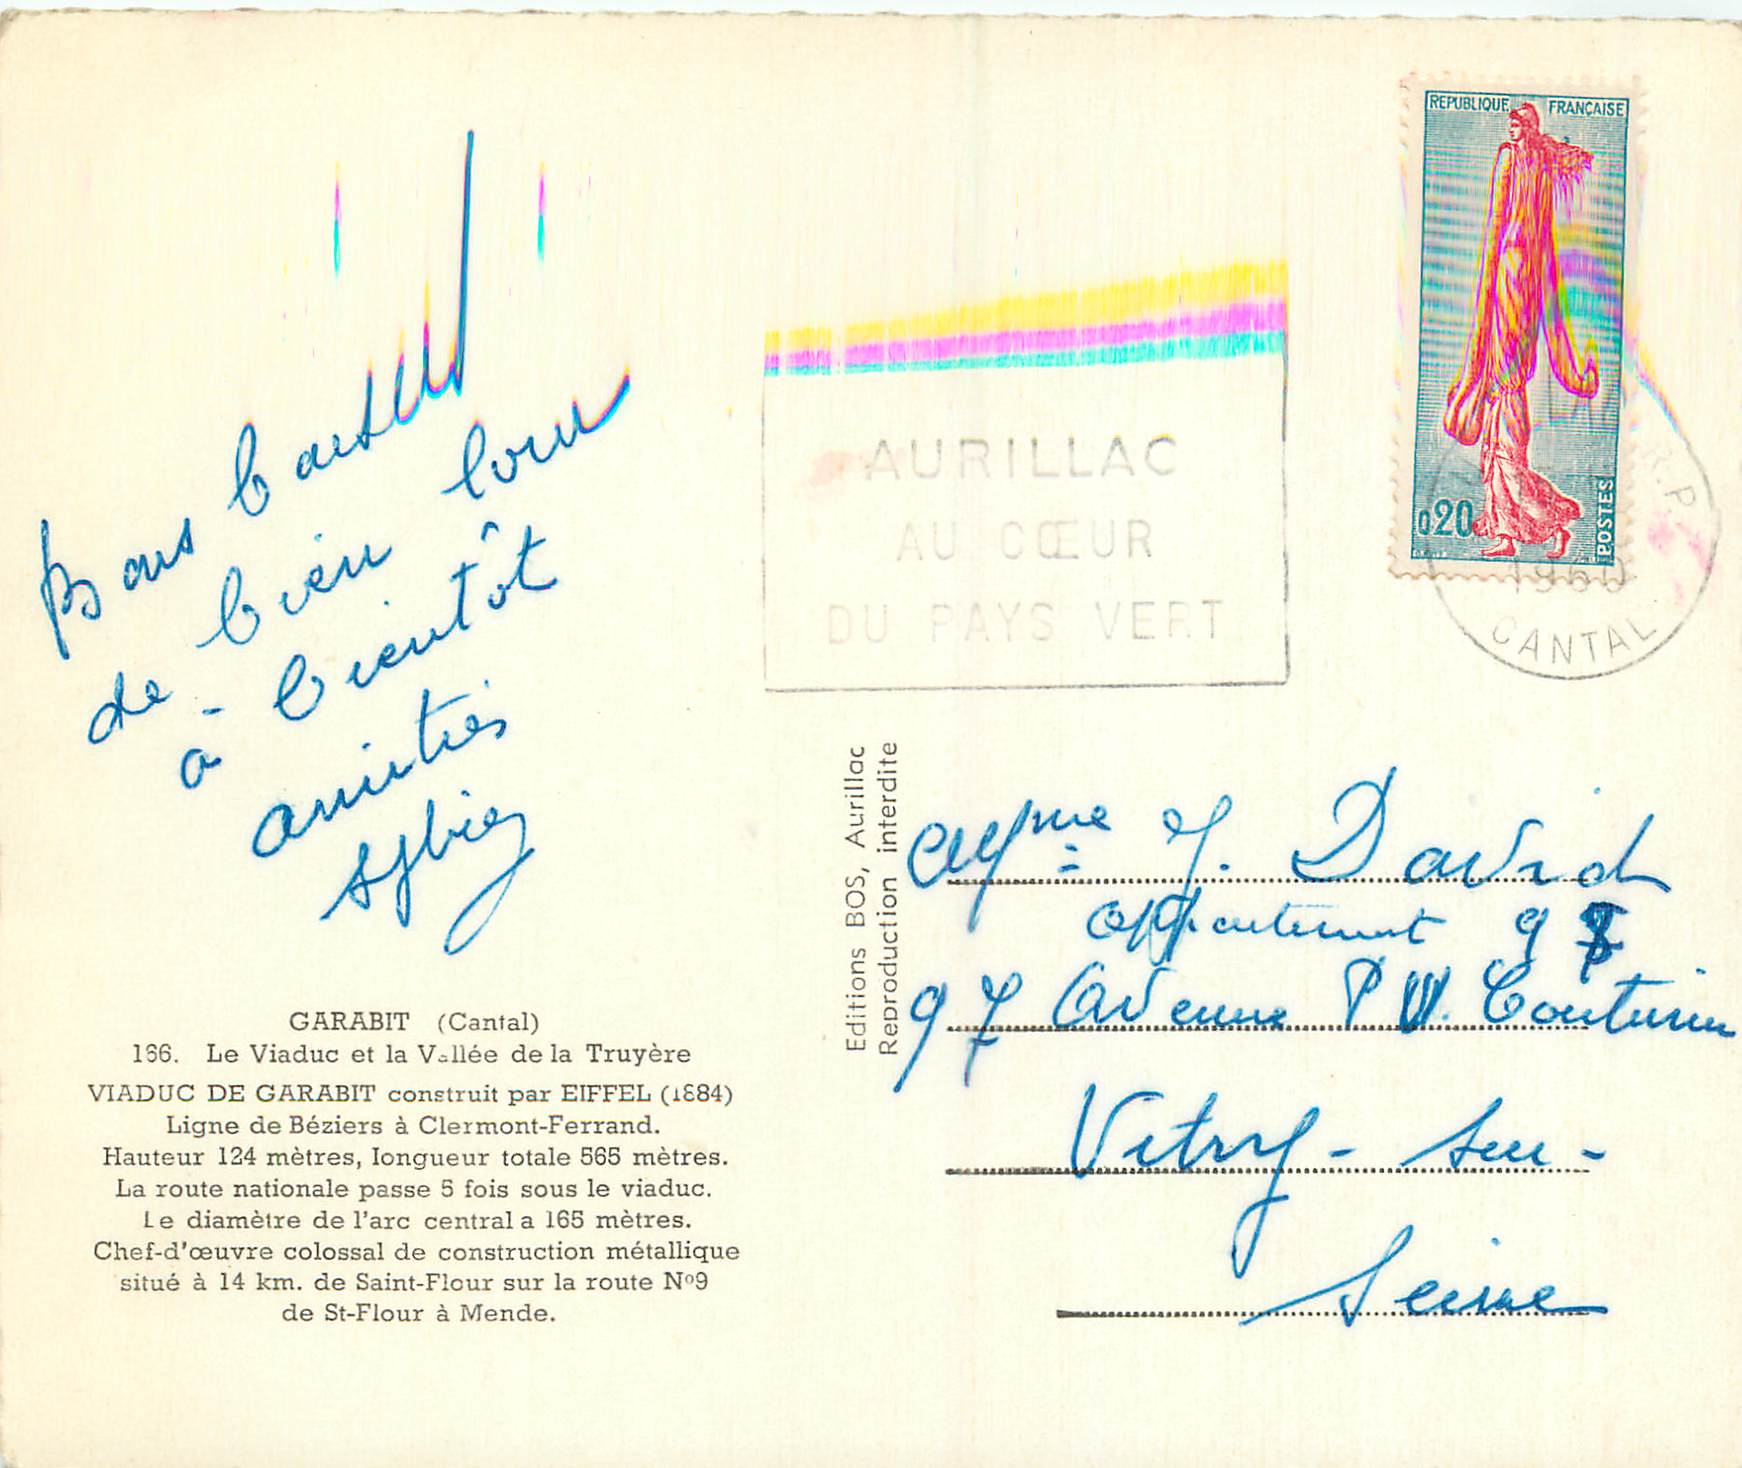 Bons baisers
de bien loin
à bientôt
amitiés
GARABIT (Cantal)
166. Le Viaduc et la Vallée de la Truyère
VIADUC DE GARABIT construit par EIFFEL (1884)
Ligne de Béziers à Clermont-Ferrand.
Hauteur 124 mètres, longueur totale 565 mètres.
La route nationale passe 5 fois sous le viaduc.
Le diamètre de l'arc central a 165 mètres.
Chef-d'œuvre colossal de construction métallique
situé à 14 km. de Saint-Flour sur la route Nº9
de St-Flour à Mende.
Editions BOS, Aurillac
Reproduction interdite
AURILLAC
AU CŒUR
DU PAYS VERT
REPUBLIQUE FRANÇAISE
0,20
POSTES
R.P.
1960
CANTAL
Mme J. David
appartement 9
97 Avenue P V. Couturier
Vitry-sur-
Seine